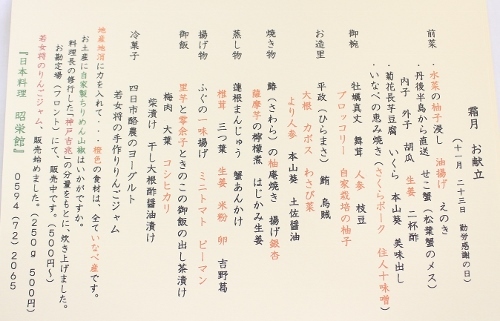 霜月 お献立
(十一月 二十三日 勤労感謝の日)
前菜
・水菜の柚子浸し 油揚げ えのき
・丹後半島から直送 せこ蟹(松葉蟹のメス)
内子 外子 胡瓜 生姜 二杯酢
・菊花長芋豆腐 いくら 本山葵 美味出し
・いなべの恵み焼き(さくらポーク 住人十味噌)
御椀
牡蠣真丈 舞茸 人参 枝豆
ブロッコリー 自家栽培の柚子
お造里
平政(ひらまさ) 鮪 烏賊
大根 カボス わさび菜
より人参 本山葵 土佐醤油
焼き物
鰆(さわら)の柚庵焼き 揚げ銀杏
薩摩芋の檸檬煮 はじかみ生姜
蒸し物
蓮根まんじゅう 蟹あんかけ
椎茸 三つ葉 生姜 米粉 卵 吉野葛
揚げ物
ふぐの一味揚げ ミニトマト ピーマン
御飯
里芋と零余子ときのこの御飯の出し茶漬け
梅肉 大葉 コシヒカリ
柴漬け 干し大根酢醤油漬け
冷菓子
四日市酪農のヨーグルト
若女将の手作りりんごジャム
地産地消に力を入れて・・・橙色の食材は、全ていなべ産です。
お土産に自家製ちりめん山椒はいかがですか。
料理長の修行した「神戸吉兆」の分量をもとに、炊き上げました。
お勘定場(フロント)にて、販売中です。(500円~)
若女将のりんごジャム、販売始めました。(250g 500円)
『日本料理 昭栄館』 0594(72)2065